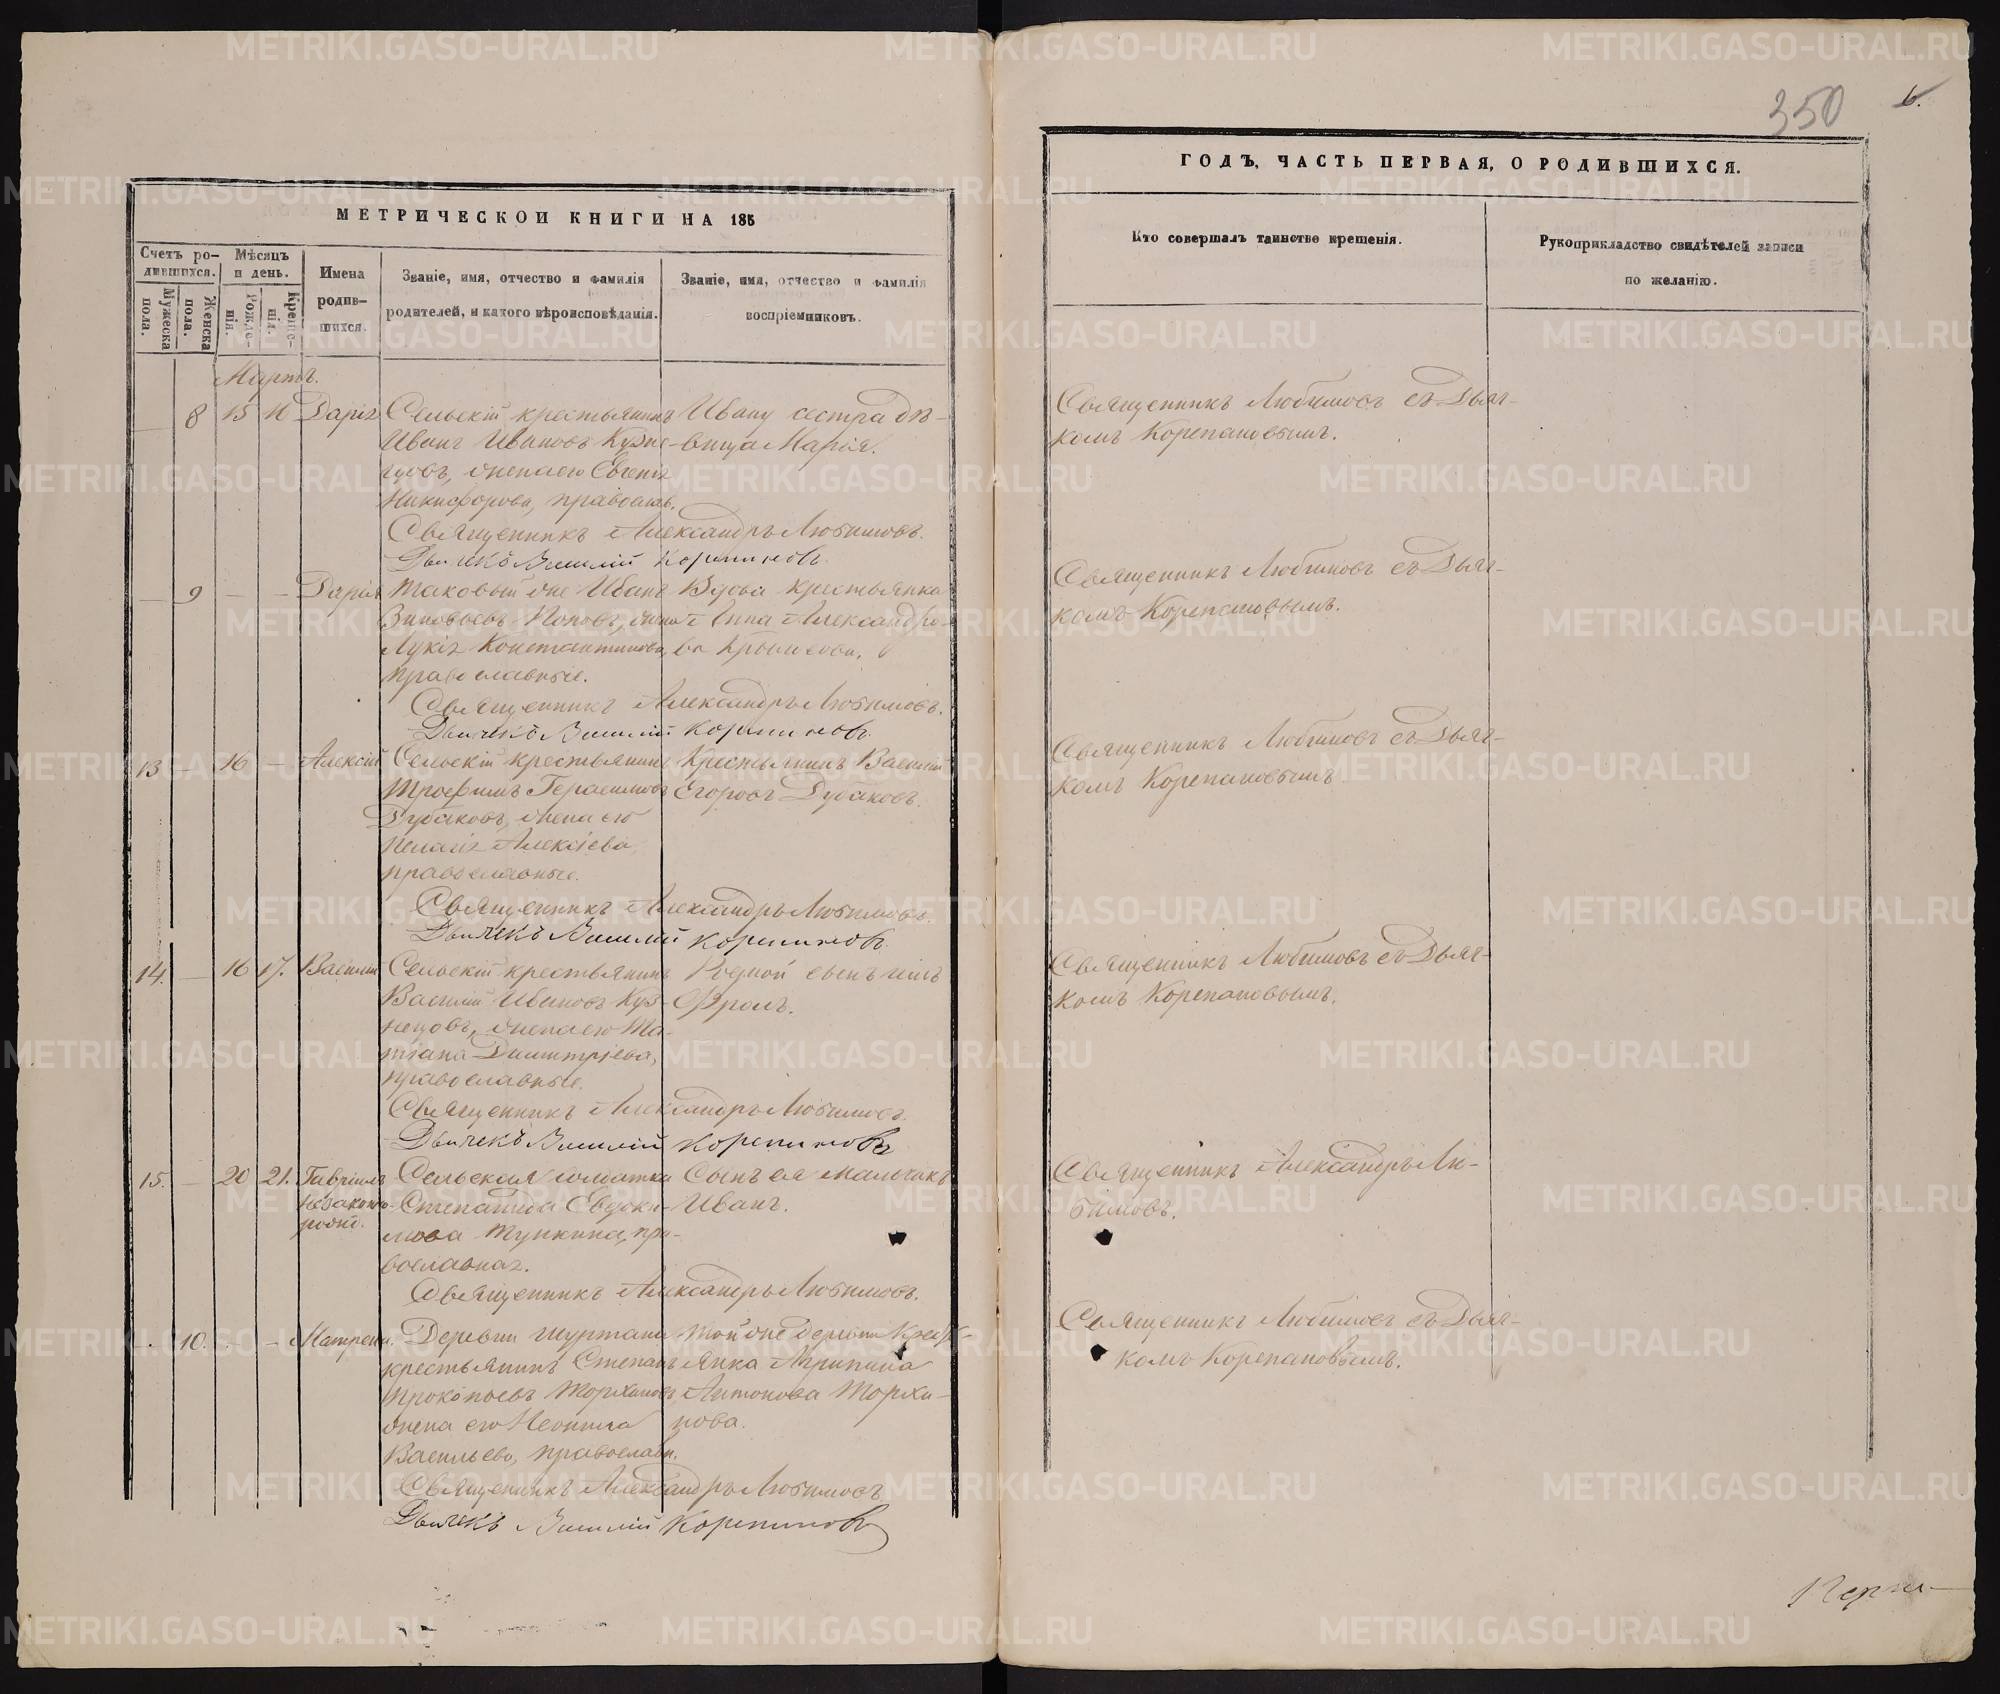 350 6.
МЕТРИЧЕСКОЙ КНИГИ НА 185
Счетъ родившихся.
Мѣсяцъ и день.
Имена родившихся.
Званіе, имя, отчество и фамилія родителей, и какого вѣроисповѣданія.
Званіе, имя, отчество и фамилія воспріемниковъ.
Мужеска пола.
Женска пола.
Рожденія.
Крещенія.
Мартъ.
8 15 16 Дарія Сельскій крестьянинъ Ивану сестра дѣ-
Иванъ Ивановъ Кузне- вица Марія.
цовъ, жена его Евгенія
Никифорова, православ.
Священникъ Александръ Любимовъ.
Дьячекъ Василій Корепановъ.
9 — — Дарія Таковый же Иванъ Вдова крестьянка
Зиновьевъ Поповъ, жена Анна Александро-
Лукія Константинова, ва
православные.
Священникъ Александръ Любимовъ.
Дьячекъ Василій Корепановъ.
13 — 16 — Алексій Сельскій крестьянинъ Крестьянинъ Василій
Трофимъ Герасимовъ Егоровъ Дубаковъ.
Дубаковъ, жена его
Пелагія Алексіева
православные.
Священникъ Александръ Любимовъ.
Дьячекъ Василій Корепановъ.
14. — 16 17. Василій Сельскій крестьянинъ Родной сынъ ихъ
Василій Ивановъ Куз- Фролъ.
нецовъ, жена его Та-
тіана Димитріева,
православные.
Священникъ Александръ Любимовъ.
Дьячекъ Василій Корепановъ
15. — 20 21. Гавріилъ Сельская солдатка Сынъ ея мальчикъ
незаконно- Степанида Евдоки- Иванъ.
рожд. мова Тункина, пра-
вославная.
Священникъ Александръ Любимовъ.
10. — Матрена. Деревни той же деревни крестья-
крестьянинъ Степанъ янка Агрипина
Прокопьевъ Торхановъ, Антонова Торха-
жена его Неонила нова.
Васильева, православн.
Священникъ Александръ Любимовъ
Дьячекъ Василій Корепановъ
ГОДЪ, ЧАСТЬ ПЕРВАЯ, О РОДИВШИХСЯ.
Кто совершалъ таинство крещенія.
Рукоприкладство свидѣтелей записи
по желанію.
Священникъ Любимовъ съ Дьяч-
комъ Корепановымъ.
Священникъ Любимовъ съ Дьяч-
комъ Корепановымъ.
Священникъ Любимовъ съ Дьяч-
комъ Корепановымъ
Священникъ Любимовъ съ Дьяч-
комъ Корепановымъ.
Священникъ Александръ Лю-
бимовъ.
Священникъ Любимовъ съ Дьяч-
комъ Корепановымъ.
METRIKI.GASO-URAL.RU